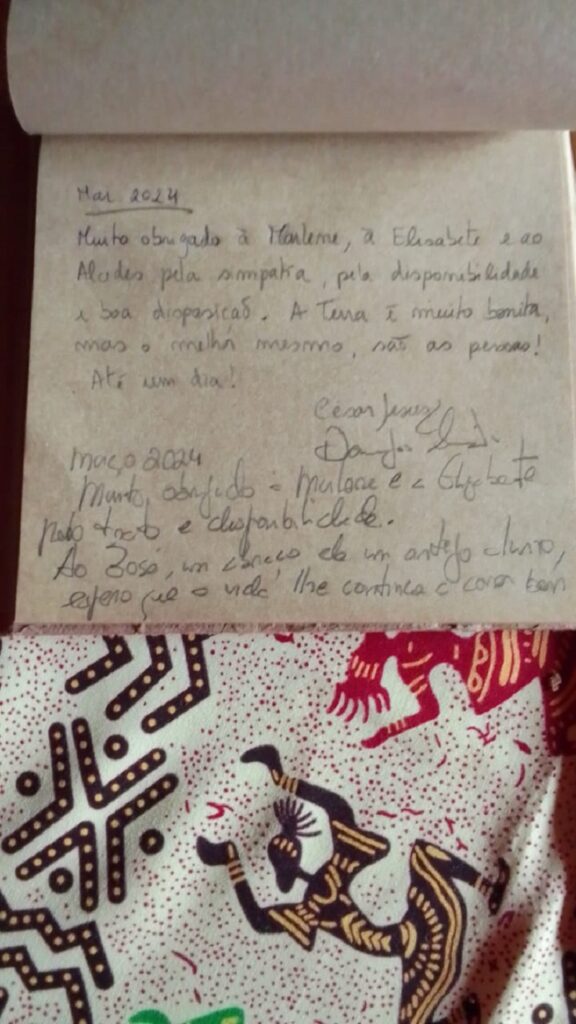 Mar 2024
Muito obrigado à Marlene, à Elisabete e ao
Alcides pela simpatia, pela disponibilidade
e boa disposição. A Terra é muito bonita,
mas o melhor mesmo, são as pessoas!
Até um dia!
César Jesus
Março 2024
Muito obrigado à Marlene e a Elizabete
pelo trato e disponibilidade.
Ao José, um abraço de um antigo aluno,
espero que a vida lhe continue a correr bem